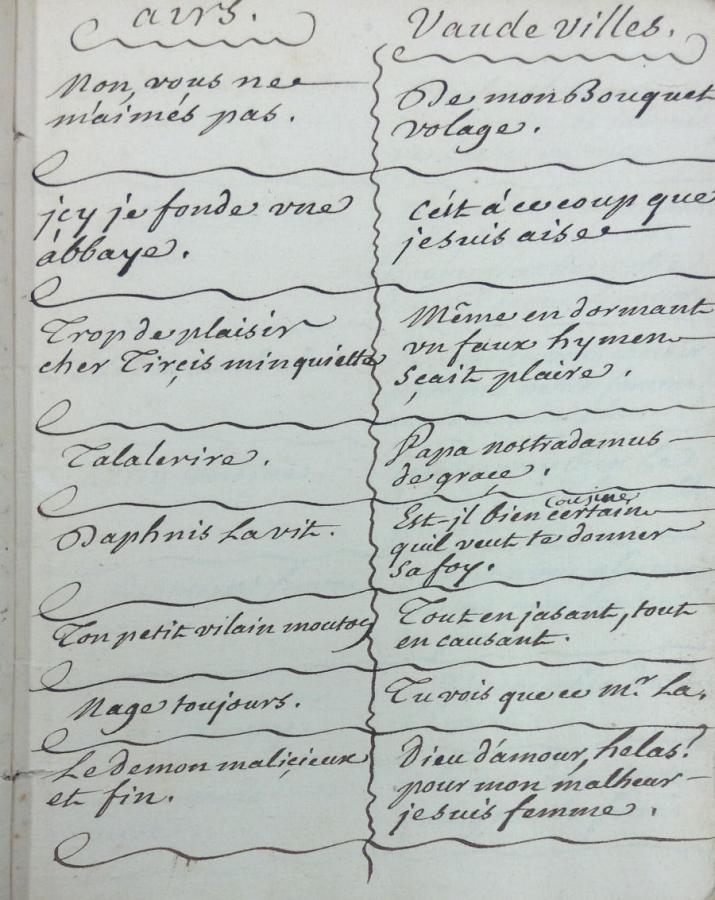 airs.
Vaudevilles.
Non, vous ne
m'aimés pas.
De mon Bouquet
volage.
jcy je fonde vne
abbaye.
C'est á ce coup que
je suis aise
Trop de plaisir
cher Tirçis m'inquiette
Même en dormant
vn faux hymen
sçait plaire.
Talalerire.
Papa nostradamus
de grace.
Daphnis la vit.
Est-jl bien certain
cousine
qu'il veut te donner
sa foy.
Ton petit vilain mouton
Tout en jasant, tout
en causant.
Nage toujours.
Tu vois que ce Mr. La.
Le demon maliçieux
et fin.
Dieu d'amour, helas!
pour mon malheur
je suis femme.